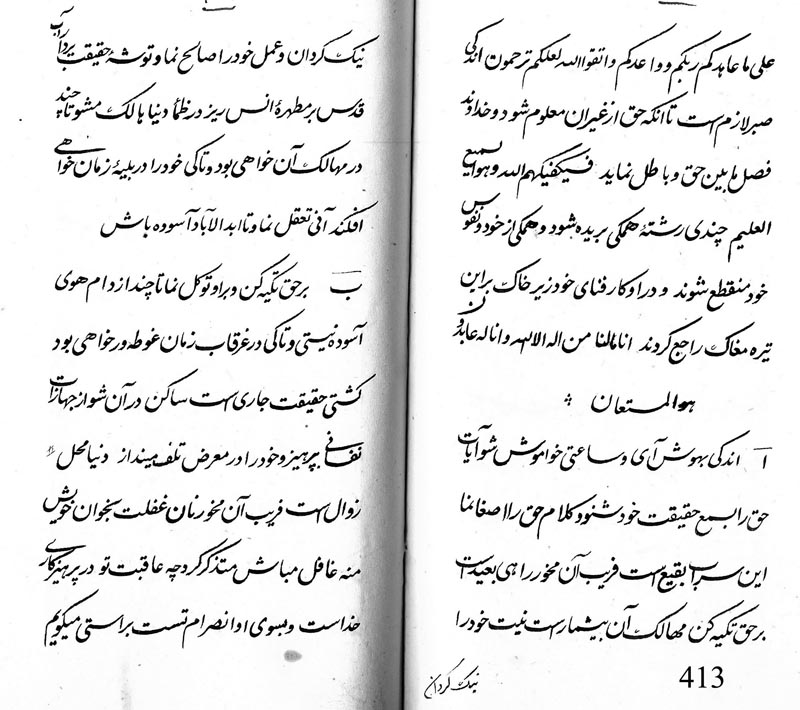 علی ما عاهدکم ربکم و واعدکم و اتقوا الله لعلکم ترحمون اندکی
صبر لازم است تا آنکه حق از غیر آن معلوم شود و خداوند
فصل مابین حق و باطل نماید فسیکفیکهم الله و هو السمیع
العلیم چندی رشتهٔ همگی بریده شود و همگی از خود و نفوس
خود منقطع شوند و در اوکار فنای خود زیر خاک بر این
تیره مغاک راجع گردند اننا لنا من اله الا الله و انا له عابدون
هو المستعان
ا اندکی بهوش آی و ساعتی خواموش شو آیات
حق را بسمع حقیقت خود شنو و کلام حق را اصغا نما
این سراب بقیع است فریب آن مخور راهی بعید است
بر حق تکیه کن مهالک آن بیشمار است نیت خود را
نیک گردان
413
نیک گردان و عمل خود را صالح نما و توشهٔ حقیقت بردار آب
قدس بر مطهرهٔ انس ریز در ظمأ دنیا هالک مشو تا چند
در مهالک آن خواهی بود و تا کی خود را در بلیهٔ زمان خواهی
افکند آنی تعقل نما و تا ابد الآباد آسوده باش
ب بر حق تکیه کن و بر او توکل نما تا چند از دام هوی
آسوده نیستی و تا کی در غرقاب زمان غوطه ور خواهی بود
کشتی حقیقت جاری است ساکن در آن شو از جهازات
نفسانی بپرهیز و خود را در معرض تلف مینداز دنیا محل
زوال است فریب آن مخور نان غفلت بخوان خویش
منه غافل مباش متذکر گرد چه عاقبت تو در پرهیزکاری
خداست و بسوی او انصرام تست براستی میگویم